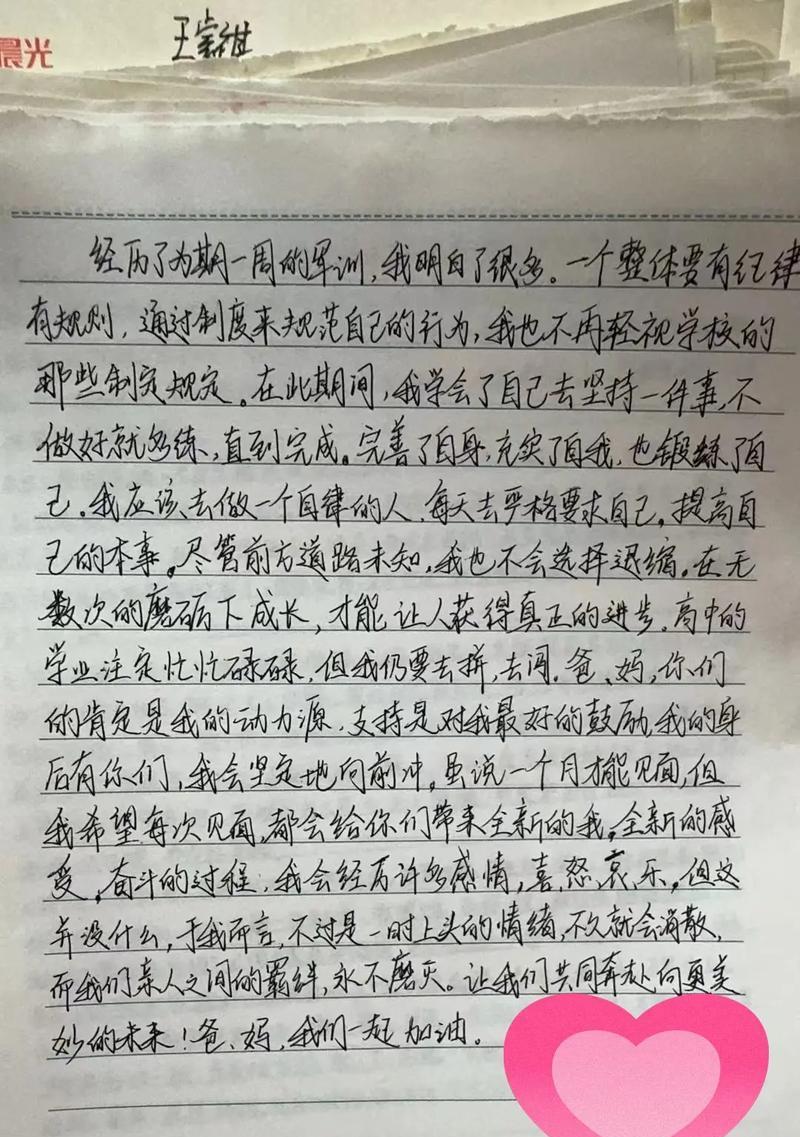 晨光
王
经历了为期一周的军训,我明白了很多。一个整体要有纪律
有规则,通过制度来规范自己的行为,我也不再轻视学校的
那些制定规定。在此期间,我学会了自己去坚持一件事,不
做好就多练,直到完成。完善了自身,充实了自我,也锻炼了自
己。我应该去做一个自律的人,每天去严格要求自己。提高自
己的本事。尽管前方道路未知,我也不会选择退缩。在无
数次的磨砺下成长,才能让人获得真正的进步。高中的
学业注定忙忙碌碌,但我仍要去拼,去闯。爸、妈,你们
的肯定是我的动力源,支持是对我最好的鼓励,我的身
后有你们,我会坚定地向前冲。虽说一个月才能见面,但
我希望每次见面,都会给你们带来全新的我,全新的感
受。奋斗的过程,我会经历许多感情,喜、怒、哀、乐。但这
并没什么,于我而言,不过是一时上头的情绪,不久就会消散,
而我们亲人之间的羁绊,永不磨灭。让我们共同奔赴向更美
妙的未来!爸、妈,我们一起加油。